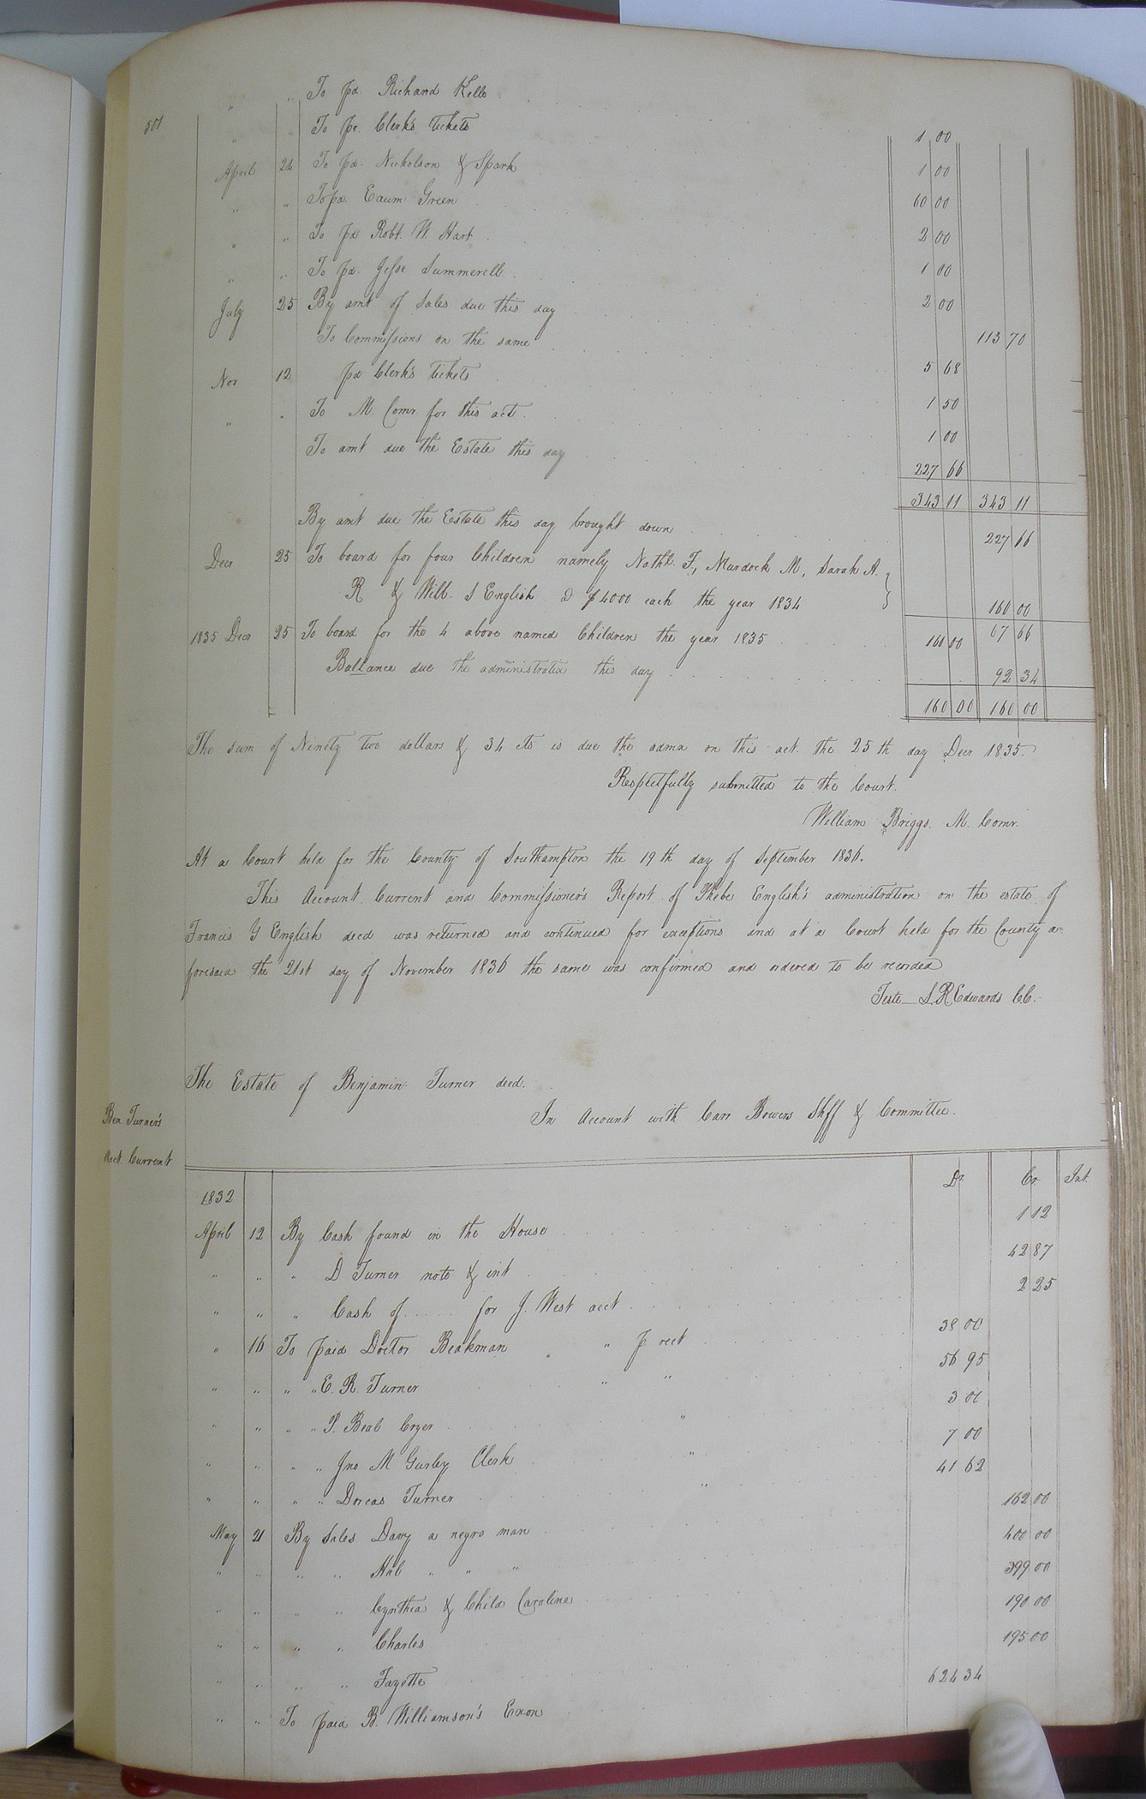 501
" " To pd. Richard Kello 1 00
" " To pr. Clerk's tickets 1 00
April 24 To pd. Nicholson & Spark 60 00
" " To pd Exum Green 2 00
" " To pd Robt. W. Hart 1 00
" " To pd. Jesse Summerell 2 00
July 25 By amt of Sales due this day 113 70
To Commissions on the same 5 68
Nov 12 pd Clerk's tickets 1 50
" " To M Comr for this act. 1 00
To amt due the Estate this day 227 66
343 11 343 11
By amt due the Estate this day brought down 227 66
Decr 25 To board for four Children namely Nathl. T, Murdock M, Sarah A.
R & Will. S English @ $4000 each the year 1834 160 00
67 66
1835 Decr 25 To board for the 4 above named Children the year 1835 160 00
Ballance due the administratrix this day 92 34
160 00 160 00
The sum of Ninety two dollars & 34 cts is due the adma on this act. the 25th day Decr 1835.
Respectfully submitted to the Court.
William Briggs. M. Comr.
At a Court held for the County of Southampton the 19th day of September 1836.
This Account Current and Commissioner's Report of Phebe English's administration on the estate of
Francis G English decd was returned and continued for exceptions and at a Court held for the County a-
foresaid the 21st day of November 1836 the same was confirmed and ordered to be recorded
Teste L. R. Edwards CC.
The Estate of Benjamin Turner decd.
In Account with Carr Bowers Shff & Committee.
Ben Turner's
Acct Current
Dr. Cr Int.
1832
April 12 By Cash found in the House 1 12
" " " D Turner note & int 42 87
" " " Cash of for J. West acct 2 25
" 16 To paid Doctor Beakman " " p rect 38 00
" " " " E. R. Turner " " 56 95
" " " " P. Beal Cryer " 3 00
" " " " Jno M Gurley Clerk " 7 00
" " " " Dorcas Turner " 41 62
May 21 By Sales Davy a negro man 162 00
" " " " Hub " " " 400 00
" " " " Cynthia & Child Caroline 399 00
" " " " Charles 190 00
" " " " Fayette 195 00
" " To paid B. Williamson's Exon 624 34